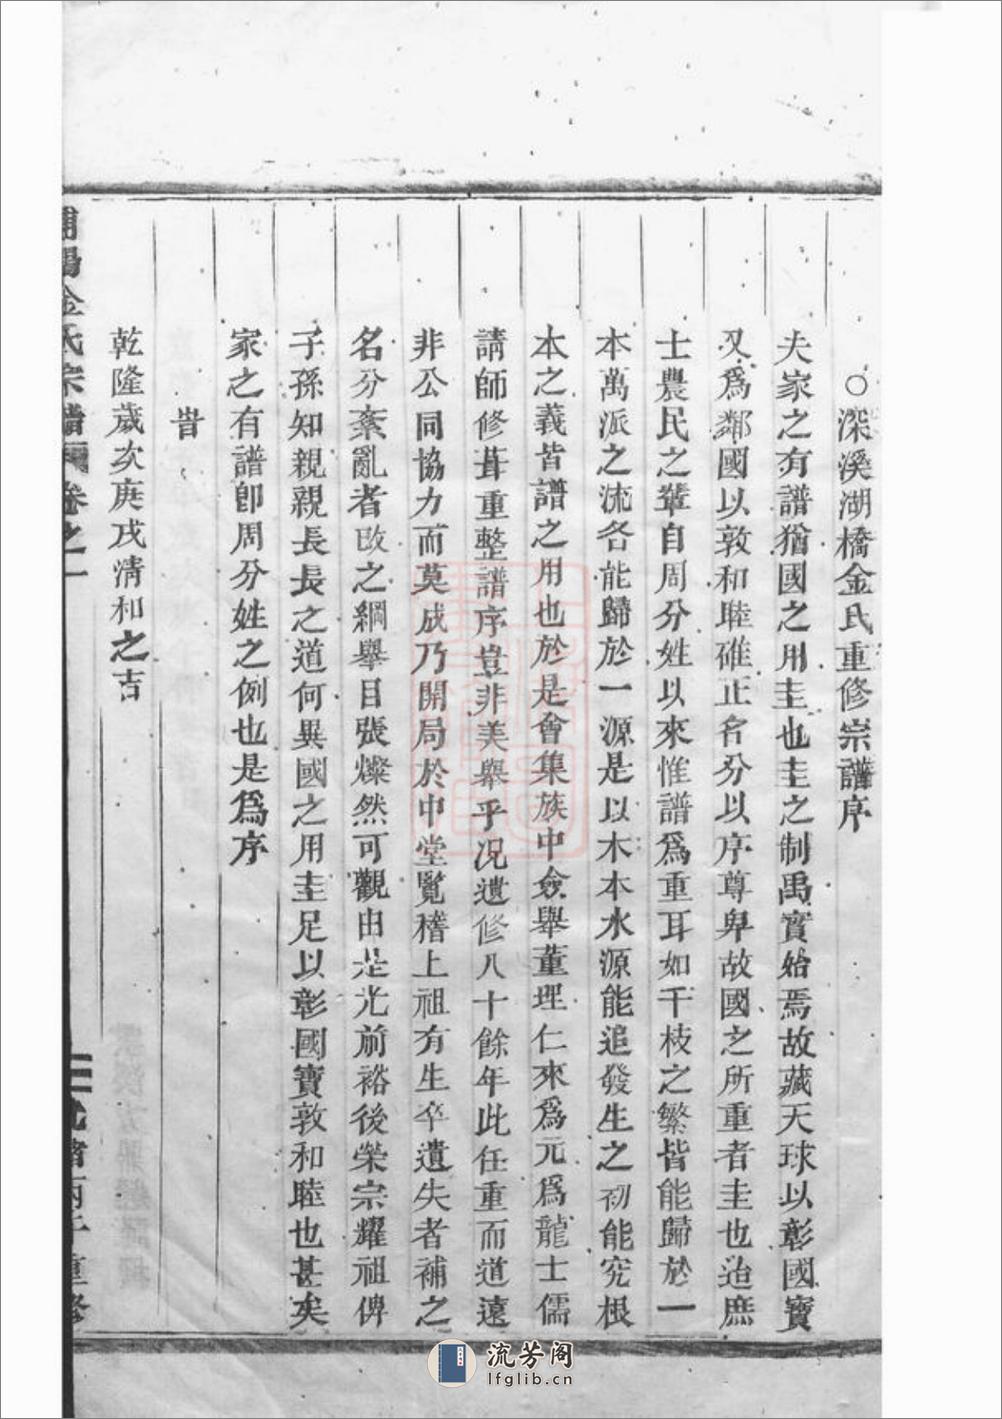 ○深溪湖橋金氏重修宗譜序
夫家之有譜猶國之用圭也圭之制禹實始焉故藏天球以彰國寶
又爲鄰國以敦和睦碓正名分以序尊卑故國之所重者圭也治庶
士農民之輩自周分姓以來惟譜爲重耳如千枝之繁皆能歸於一
本萬派之流各能歸於一源是以木本水源能追發生之初能究根
本之義皆譜之用也於是會集族中僉舉董理仁來爲元爲龍士儒
請師修葺重整譜序豈非美舉乎况遺修八十餘年此任重而道遠
非公同協力而莫成乃開局於中堂覧稽上祖有生卒遺失者補之
名分紊亂者改之綱舉目張燦然可觀由是光前裕後榮宗耀祖俾
子孫知親親長長之道何異國之用圭足以彰國寶敦和睦也甚矣
家之有譜卽周分姓之例也是爲序
旹
乾隆歲次庚戌清和之吉
浦陽金氏宗譜 卷之一
光緒丙午重修
流芳阁
lfglib.cn